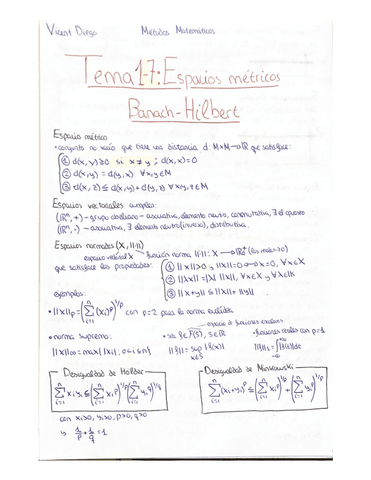 Vicent Diego Métodos Matemáticos
Tema 1-7: Espacios métricos
Banach-Hilbert
Espacio métrico
• conjunto no vacío que tiene una distancia d: M×M→ℝ que satisface:
① d(x,y)≥0 si x≠y ; d(x,x)=0
② d(x,y) = d(y,x) ∀x,y∈M
③ d(x,z) ≤ d(x,y)+d(y,z) ∀x,y,z∈M
Espacios vectoriales cumplen:
(ℝⁿ,+) - grupo abeliano - asociativa, elemento neutro, conmutativa, ∃ el opuesto
(ℝⁿ,·) - asociativa, ∃ elemento neutro (inverso), distributiva.
Espacios normados (X, ||·||)
espacio vectorial X función norma ||·||: X→ℝ
que satisface las propiedades:
① ||x||>0 y ||x||=0 ⇔ x=0, ∀x∈X
② ||λx||=|λ| ||x||, ∀x∈X y ∀λ∈K
③ ||x+y|| ≤ ||x||+||y||
ejemplos:
• ||x||p = (∑ᵢ₌₁ⁿ (xᵢ)ᵖ)^(1/p) con p=2 para la norma euclídea
• norma supremo:
||x||∞ = max{|xᵢ|, 0≤i≤n}
espacio de funciones
• sea f∈F(S), S∈ℝ
||f|| = sup |f(x)|
x∈S
funciones reales con p=1
||f||₁ = ∫ |f(x)|dx
Desigualdad de Hölder
∑ᵢ₌₁ⁿ xᵢyᵢ ≤ (∑ᵢ₌₁ⁿ xᵢᵖ)^(1/p) (∑ᵢ₌₁ⁿ yᵢ^q)^(1/q)
con xᵢ>0, yᵢ>0, p>0, q>0
y 1/p + 1/q = 1
Desigualdad de Minkowski
∑ᵢ₌₁ⁿ (xᵢ+yᵢ)ᵖ ≤ (∑ᵢ₌₁ⁿ xᵢᵖ)^(1/p) + (∑ᵢ₌₁ⁿ yᵢᵖ)^(1/p)